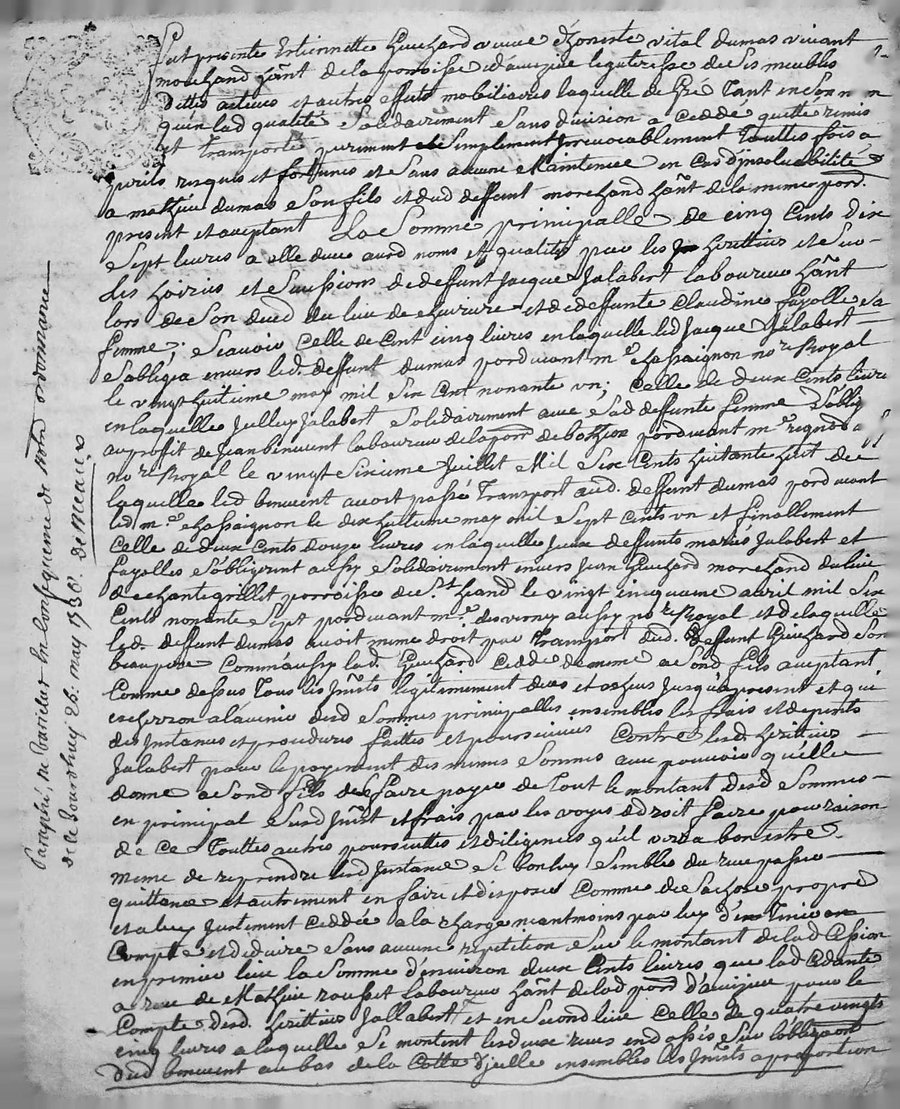 fut presente Estiennette Guichard veuve d'honeste vital dumas vivant
marchand hânt de la parroisse d'amizieu legateresse de ses meubles
dettes actives et autres effets mobiliaires laquelle de gré tant en son nom
qu'en lad qualité solidairement sans division a ceddé quitté remis
et transporté purement et simplement irrevocablement touttes fois a
perils risques et fortunes et sans aucune maintenüe en cas d'insolvabilité
a mathieu dumas son fils et dud deffunt marchand hânt de la mème parr.
present et aceptant La Somme principalle de cinq cents dix
sept livres a elle deue ausd noms et qualités par les heritiers et
des hoiries et successions de deffunt Jacque Jalabert laboureur hânt
lors de son deced du lieu de et de deffunte Claudine fayolle sa
femme, scavoir celle de cent cinq livres en laquelle led Jacque Jalabert
s'obligea envers led. deffunt dumas pardevant m.e chassaignon no.re Royal
le vingt huitieme may mil six cent nonante un; celle de deux cents livres
en laquelle Jalabert solidairement avec sad deffunte femme s'oblig
au proffit de Jean benevent laboureur de la parr de pardevant m.e
no.re Royal le vingt sixieme Juillet mil six cents huitante huit de
laquelle led benevent avoit passé transport aud. deffunt dumas pardevant
led m.e chassaignon le dix huitieme may mil sept cents un et finallement
celle de deux cents douze livres en laquelle deffunts mariés Jalabert et
fayolles s'obligerent aussy solidairement envers Jean Guichard marchand du lieu
de chantegrillet parroisse de S.t le vingt cinquieme avril mil six
cents nonante sept pardevant m.e desverney aussy no.re Royal et de laquelle
led. deffunt dumas avoit meme droit par transport dud. deffunt Guichard son
beaupere Comm'aussy lad. Guichard cede de meme a sond fils aceptant
comme dessus tous les jnsts legitimement deus et echeus jusqu'a present et qui
echerron a l'avenir desd sommes principalles ensembles les frais et depents
des jnstances et procedures faittes et poursuivies contre lesd heritiers
Jalabert pour le payement des memes sommes avec pouvoir qu'elle
donne a sond fils de se faire payer de tout le montant desd sommes
en principal jnst et frais par les voyes de droit faire pour raison
de ce touttes autres poursuittes et diligences qu'il verra bon estre
meme de reprendre lesd jnstances si bon luy semble du receu passer
quittance et autrement en faire et disposer comme de sa chose propre
et a luy justement ceddée a la charge neantmoins par luy d'en tenir
compte et deduire sans aucune repetition sur le montant de lad cession
en premier lieu la somme d'environ deux cents livres que lad cedante
a receu de Mathieu rousset laboureur hânt de lad parr d'amizieu pour le
compte desd. heritiers Jallabert et en second lieu celle de quatre vingts
cinq livres a laquelle se montent les deux receus endossés sur l'obligaon
dud benevent au bas de la cotte d'jcelle ensembles les jnsts a proportion
Paraphé, ne varietur en consequence de notre ordonnance
de ce Jourdhuy 26. may 1736.